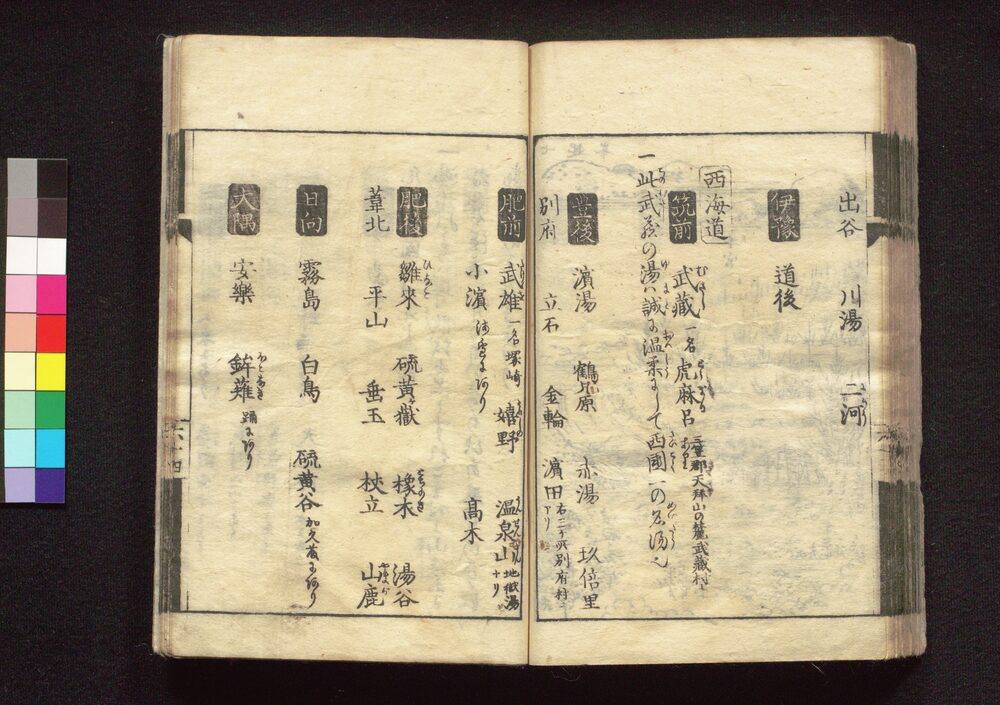 出谷 川湯 二河
伊豫 道後
西海道
筑前 武藏 一名 虎麻呂 天拜山の麓武藏村
一 此武蔵の湯ハ誠に温柔にして西國一の名湯也
豊後 濱湯 鶴原 赤湯 玖倍里
別府 立石 金輪 濱田 右三ケ所別府村
肥前 武雄 一名塚崎 嬉野 温泉山 地獄湯
小濱 高木
肥後 雛來 硫黄嶽 橡木 湯谷
葦北 平山 垂玉 杖立 山鹿
日向 霧島 白鳥 硫黄谷
大隅 安樂 鉾薙 踊にあり